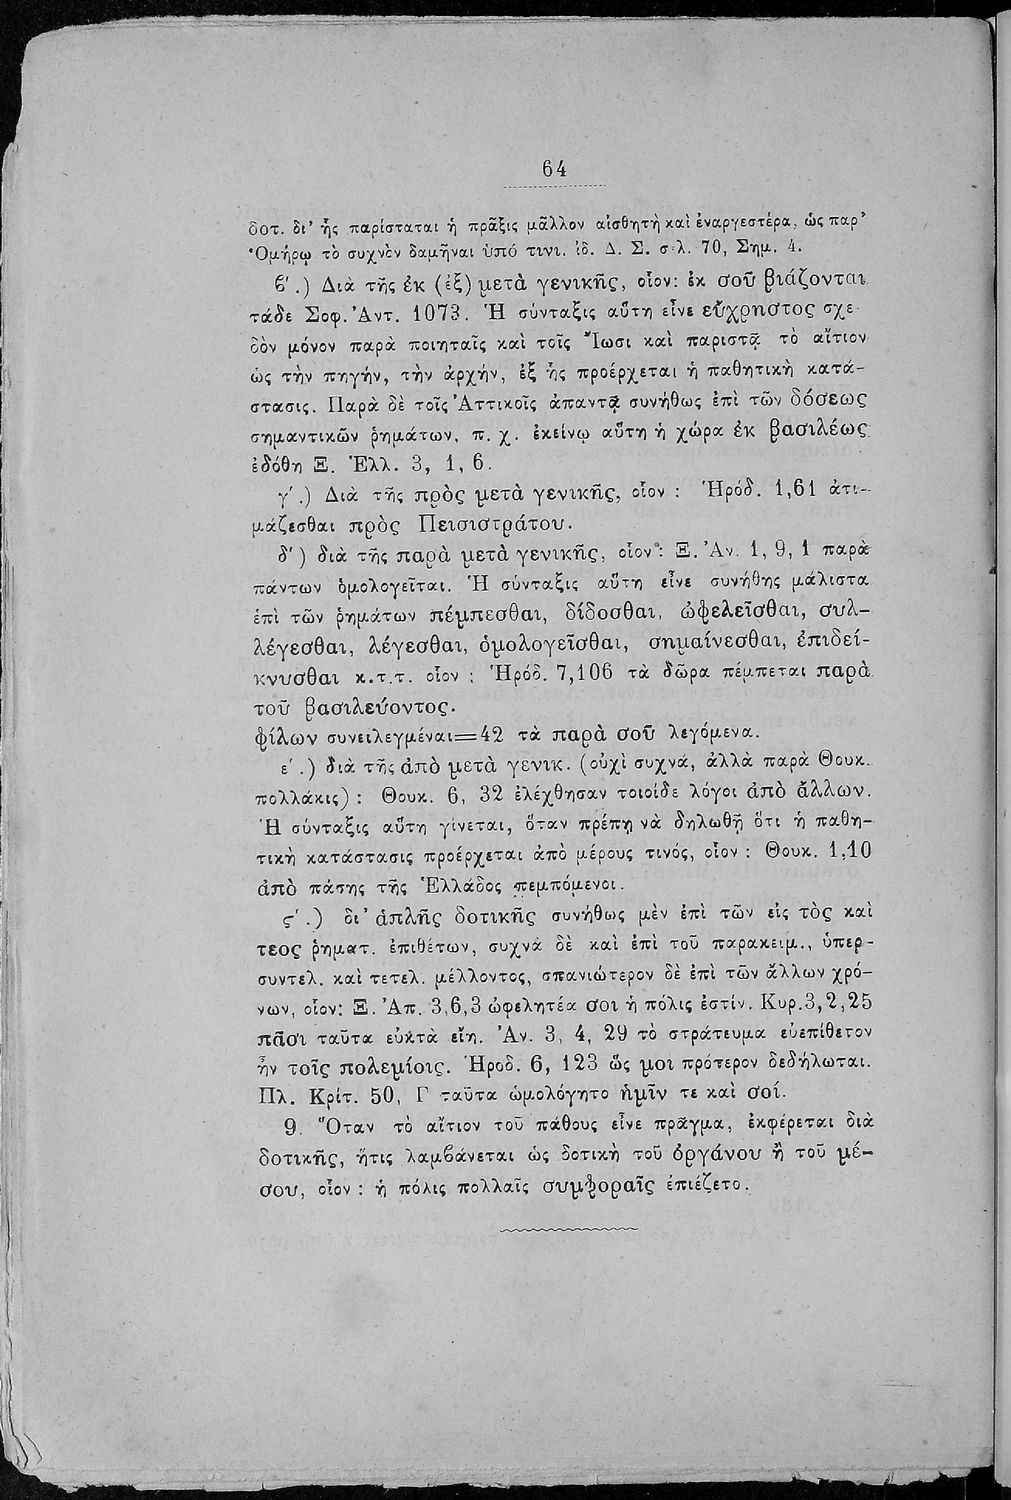 64
δοτ. δι' ἧς παρίσταται ἡ πρᾶξις μᾶλλον αἰσθητὴ καὶ ἐναργεστέρα, ὡς παρ'
Ὁμήρῳ τὸ συχνὸν δαμῆναι ὑπό τινι. ἰδ. Δ. Σ. σελ. 70, Σημ. 4.
β'.) Διὰ τῆς ἐκ (ἐξ) μετὰ γενικῆς, οἷον: ἐκ σοῦ βιάζονται
τάδε Σοφ. Ἀντ. 1073. Ἡ σύνταξις αὕτη εἶνε εὔχρηστος σχε-
δὸν μόνον παρὰ ποιηταῖς καὶ τοῖς Ἴωσι καὶ παριστᾷ τὸ αἴτιον
ὡς τὴν πηγήν, τὴν ἀρχήν, ἐξ ἧς προέρχεται ἡ παθητικὴ κατά-
στασις. Παρὰ δὲ τοῖς Ἀττικοῖς ἀπαντᾷ συνήθως ἐπὶ τῶν δόσεως
σημαντικῶν ῥημάτων, π. χ. ἐκείνῳ αὕτη ἡ χώρα ἐκ βασιλέως
ἐδόθη Ξ. Ἑλλ. 3, 1, 6.
γ'.) Διὰ τῆς πρὸς μετὰ γενικῆς, οἷον : Ἡρόδ. 1,61 ἀτι-
μάζεσθαι πρὸς Πεισιστράτου.
δ') διὰ τῆς παρὰ μετὰ γενικῆς, οἷον : Ξ. Ἀν. 1, 9, 1 παρὰ
πάντων ὁμολογεῖται. Ἡ σύνταξις αὕτη εἶνε συνήθης μάλιστα
ἐπὶ τῶν ῥημάτων πέμπεσθαι, δίδοσθαι, ὠφελεῖσθαι, συλ-
λέγεσθαι, λέγεσθαι, ὁμολογεῖσθαι, σημαίνεσθαι, ἐπιδεί-
κνυσθαι κ.τ.τ. οἷον : Ἡρόδ. 7,106 τὰ δῶρα πέμπεται παρὰ
τοῦ βασιλεύοντος.
φίλων συνειλεγμέναι=42 τὰ παρὰ σοῦ λεγόμενα.
ε'.) διὰ τῆς ἀπὸ μετὰ γενικ. (οὐχὶ συχνά, ἀλλὰ παρὰ Θουκ.
πολλάκις) : Θουκ. 6, 32 ἐλέχθησαν τοιοίδε λόγοι ἀπὸ ἄλλων.
Ἡ σύνταξις αὕτη γίνεται, ὅταν πρέπῃ νὰ δηλωθῇ ὅτι ἡ παθη-
τικὴ κατάστασις προέρχεται ἀπὸ μέρους τινός, οἷον : Θουκ. 1,10
ἀπὸ πάσης τῆς Ἑλλάδος πεμπόμενοι.
ς'.) δι' ἁπλῆς δοτικῆς συνήθως μὲν ἐπὶ τῶν εἰς τὸς καὶ
τεος ῥηματ. ἐπιθέτων, συχνὰ δὲ καὶ ἐπὶ τοῦ παρακειμ., ὑπερ-
συντελ. καὶ τετελ. μέλλοντος, σπανιώτερον δὲ ἐπὶ τῶν ἄλλων χρό-
νων, οἷον: Ξ. Ἀπ. 3,6,3 ὠφελητέα σοι ἡ πόλις ἐστίν. Κυρ.3,2,25
πᾶσι ταῦτα εὐκτὰ εἴη. Ἀν. 3, 4, 29 τὸ στράτευμα εὐεπίθετον
ἦν τοῖς πολεμίοις. Ἡροδ. 6, 123 ὥς μοι πρότερον δεδήλωται.
Πλ. Κρίτ. 50, Γ ταῦτα ὡμολόγητο ἡμῖν τε καὶ σοί.
9. Ὅταν τὸ αἴτιον τοῦ πάθους εἶνε πρᾶγμα, ἐκφέρεται διὰ
δοτικῆς, ἥτις λαμβάνεται ὡς δοτικὴ τοῦ ὀργάνου ἢ τοῦ μέ-
σου, οἷον : ἡ πόλις πολλαῖς συμφοραῖς ἐπιέζετο.